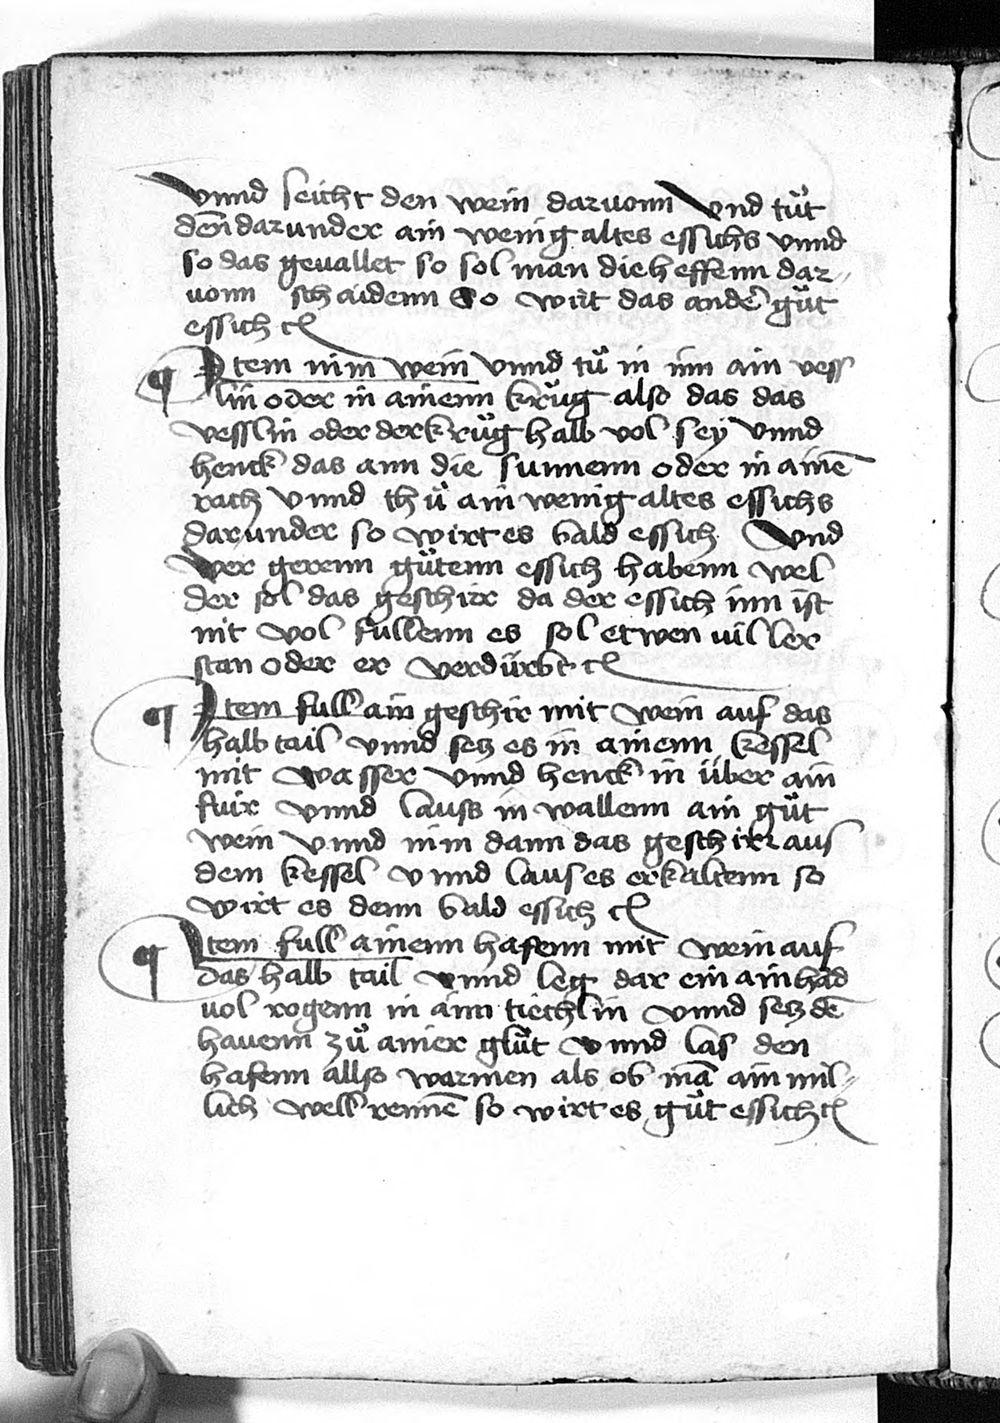 vnnd seicht den wein daruonn Vnd tůt
den̄ darunder ain wenig altes essichs vnnd
so das geuallet so sol man die heffenn dar„
uonn schaidenn So wirt das ander gůt
essich ꝛc
¶ Item nim wein vnnd tů in inn ain vess
lin oder in ainenn krůg also das das
vesslin oder der krůg halb vol sey vnnd
henck das ann die sunnenn oder in ainē
rach vnnd thů ain wenig altes essichs
darunder so wirt es bald essich Vnd
Wer gerenn gůtenn essich habenn wel
der sol das geschirr da der essich inn ist
nit vol fullenn es sol etwen uil ler
stan oder er verdürbt ꝛc
¶ Item full ain geschir mit wein auf das
halb tail vnnd setz es in ainenn kessel
mit wasser vnnd henck in über ain
fuir vnnd lauss in wallenn ain gůt
wein vnnd nim dann das geschirr aus
dem kessel vnnd laus es erkaltenn so
wirt es denn bald essich ꝛc
¶ Item full ainenn hafenn mit wein auf
das halb tail vnnd leg dar ein ain had
vol rogenn in aim tiechlin vnnd setz dē
hauenn zů ainer glůt vnnd las den
hafenn allso warmen als ob mā ain mil„
lich well rennē so wirt es gůt essich ꝛc